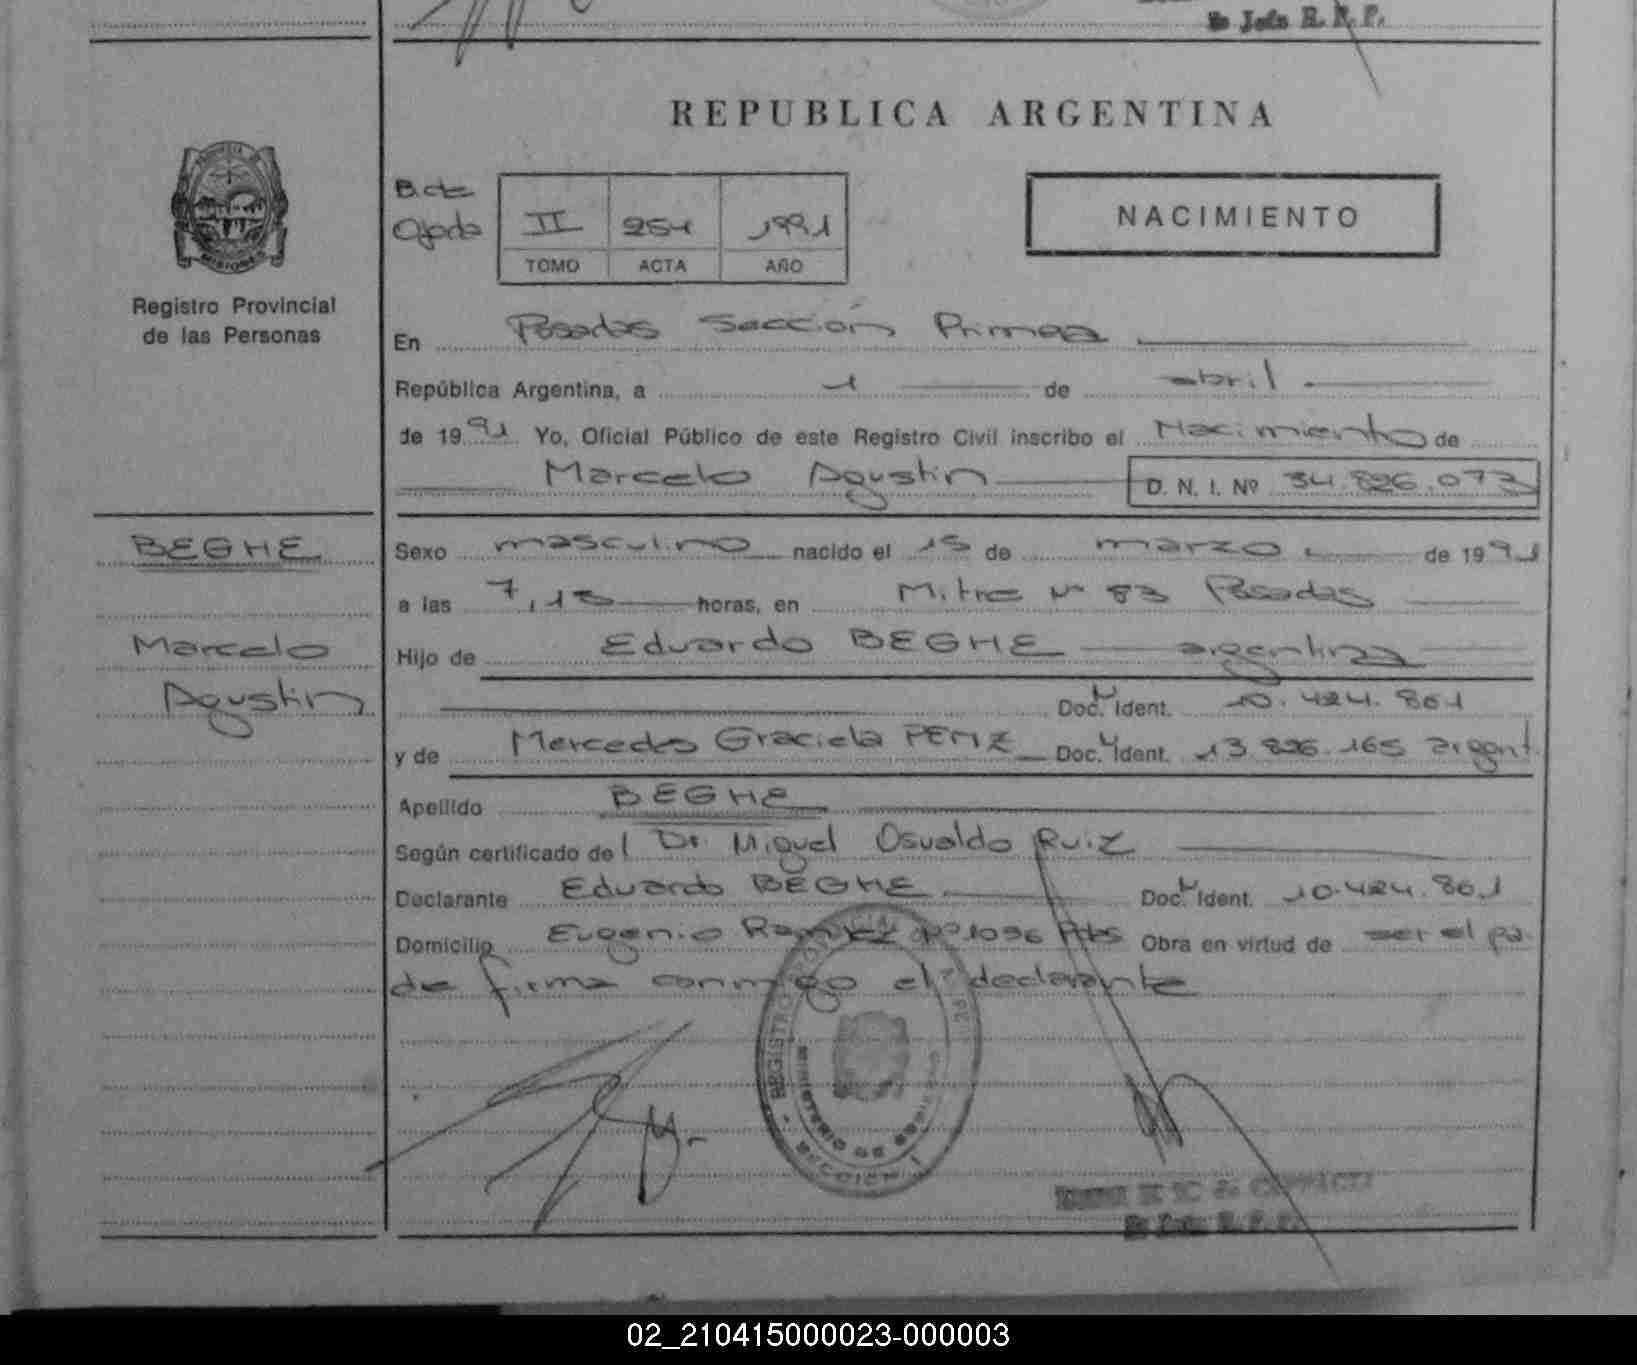 Jefe R. P. P.
REPUBLICA ARGENTINA
PROVINCIA DE
MISIONES
Registro Provincial
de las Personas
II 254 1991
TOMO ACTA AÑO
NACIMIENTO
En Posadas Sección Primera
República Argentina, a 1 de abril
de 1991 Yo, Oficial Público de este Registro Civil inscribo el Nacimiento de
Marcelo Agustin D. N. I. Nº 34.826.073
BEGHE
Marcelo
Agustin
Sexo masculino nacido el 15 de marzo de 1991
a las 7,15 horas, en Mitre Nº 83 Posadas
Hijo de Eduardo BEGHE argentina
Doc. Ident. 10.424.861
y de Mercedes Graciela Doc. Ident. 13.826.165 argent.
Apellido BEGHE
Según certificado del Dr. Miguel Osvaldo Ruiz
Declarante Eduardo BEGHE Doc. Ident. 10.424.861
Domicilio Eugenio Ramirez Nº 1096 Pdas Obra en virtud de ser el pa-
dre firma conmigo el declarante
REGISTRO PROVINCIAL
MINISTERIO DE GOBIERNO
SECCION 1
02_210415000023-000003